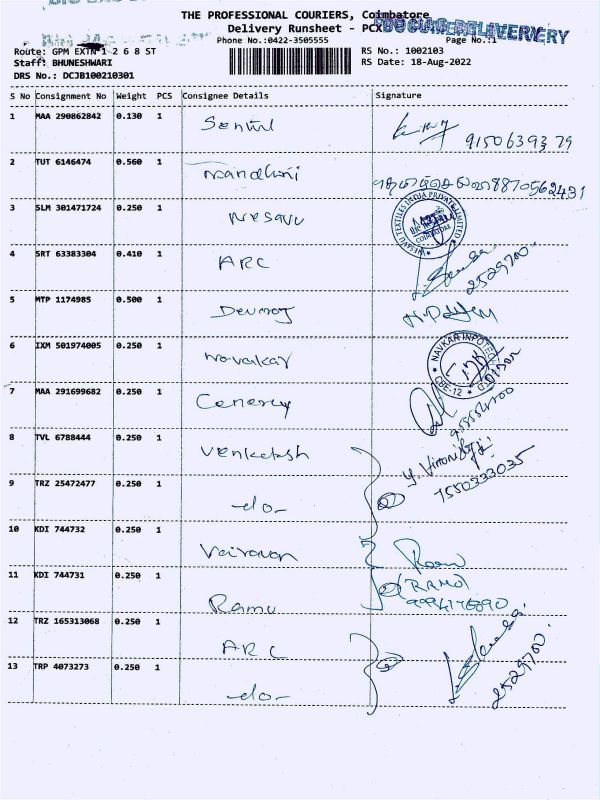 THE PROFESSIONAL COURIERS, Coimbatore
Delivery Runsheet - PCX
Phone No.:0422-3505555 Page No.:1
Route: GPM EXTN 1 2 6 8 ST RS No.: 1002103
Staff: BHUNESHWARI RS Date: 18-Aug-2022
DRS No.: DCJB100210301
S No Consignment No Weight PCS Consignee Details Signature
1 MAA 290862842 0.130 1 Senthil
9150639379
2 TUT 6146474 0.560 1 Nandhini
8870562431
3 SLM 301471724 0.250 1 Nesavu
NESAVU TEXTILES INDIA PRIVATE LIMITED
COIMBATORE
4 SRT 63383304 0.410 1 ARC
2529700
5 MTP 1174985 0.500 1 Devraj
6 IXM 501974005 0.250 1 Navakar
NAVKAR INFOTECH
CBE-12
7 MAA 291699682 0.250 1
8 TVL 6788444 0.250 1 Venkatesh
7550333035
9 TRZ 25472477 0.250 1 -do-
10 KDI 744732 0.250 1 Vairavan
11 KDI 744731 0.250 1 Ramu
(RAMU)
12 TRZ 165313068 0.250 1 ARC
13 TRP 4073273 0.250 1 -do-
2529700